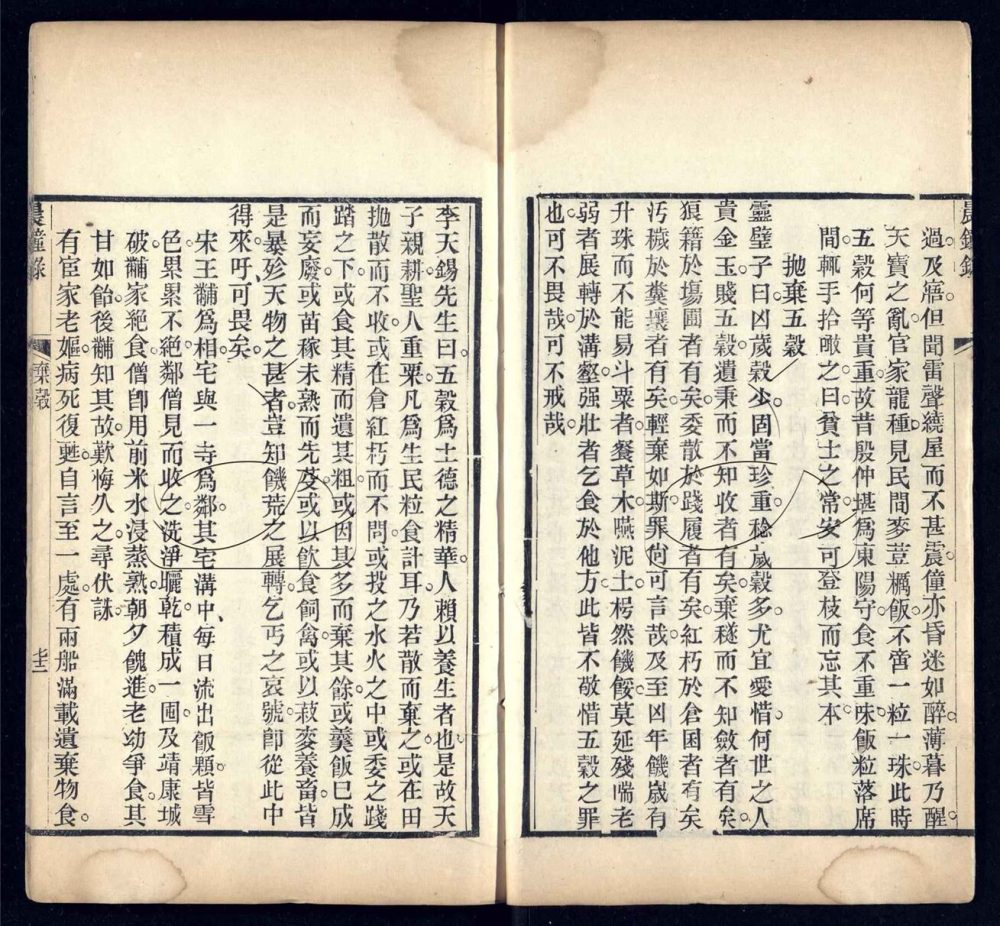 晨鐘錄
過及寤但聞雷聲繞屋而不甚震僮亦昏迷如醉薄暮乃醒
天寶之亂官家龍種見民間麥荳糲飯不啻一粒一珠此時
五穀何等貴重故昔殷仲堪為東陽守食不重味飯粒落席
間輒手拾噉之曰貧士之常安可登枝而忘其本
拋棄五穀
靈璧子曰凶歲穀少固當珍重稔歲穀多尤宜愛惜何世之人
貴金玉賤五穀遺秉而不知收者有矣棄穟而不知斂者有矣
狼籍於場圃者有矣委散於踐履者有矣紅朽於倉囷者有矣
汚穢於糞壤者有矣輕棄如斯罪何可言哉及至凶年饑歲有
升珠而不能易斗粟者餐草木嚥泥土枵然饑餒莫延殘喘老
弱者展轉於溝壑强壯者乞食於他方此皆不敬惜五穀之罪
也可不畏哉可不戒哉
李天錫先生曰五穀爲土德之精華人賴以養生者也是故天
子親耕聖人重粟凡爲生民粒食計耳乃若散而棄之或在田
拋散而不收或在倉紅朽而不問或投之水火之中或委之踐
踏之下或食其精而遺其粗或因其多而棄其餘或羹飯已成
而妄廢或苗稼未熟而先芟或以飲食飼禽或以菽麥養畜皆
是暴殄天物之甚者豈知饑荒之展轉乞丐之哀號卽從此中
得來吁可畏矣
宋王黼爲相宅與一寺爲鄰其宅溝中每日流出飯顆皆雪
色累累不絕鄰僧見而收之洗淨曬乾積成一囤及靖康城
破黼家絕食僧卽用前米水浸蒸熟朝夕餽進老幼爭食其
甘如飴後黼知其故歎悔久之尋伏誅
有宦家老嫗病死復甦自言至一處有兩船滿載遺棄物食
晨鐘錄
棄穀
七三